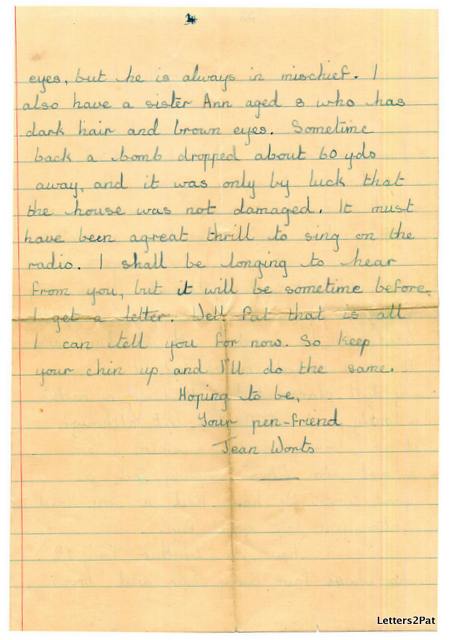 eyes, but he is always in mischief. I
also have a sister Ann aged 8 who has
dark hair and brown eyes. Sometime
back a bomb dropped about 60 yds
away, and it was only by luck that
the house was not damaged. It must
have been agreat thrill to sing on the
radio. I shall be longing to hear
from you, but it will be sometime before
I get a letter. Well Pat that is all
I can tell you for now. So keep
your chin up and I'll do the same.
Hoping to be,
Your pen-friend
Jean Worts
Letters2Pat